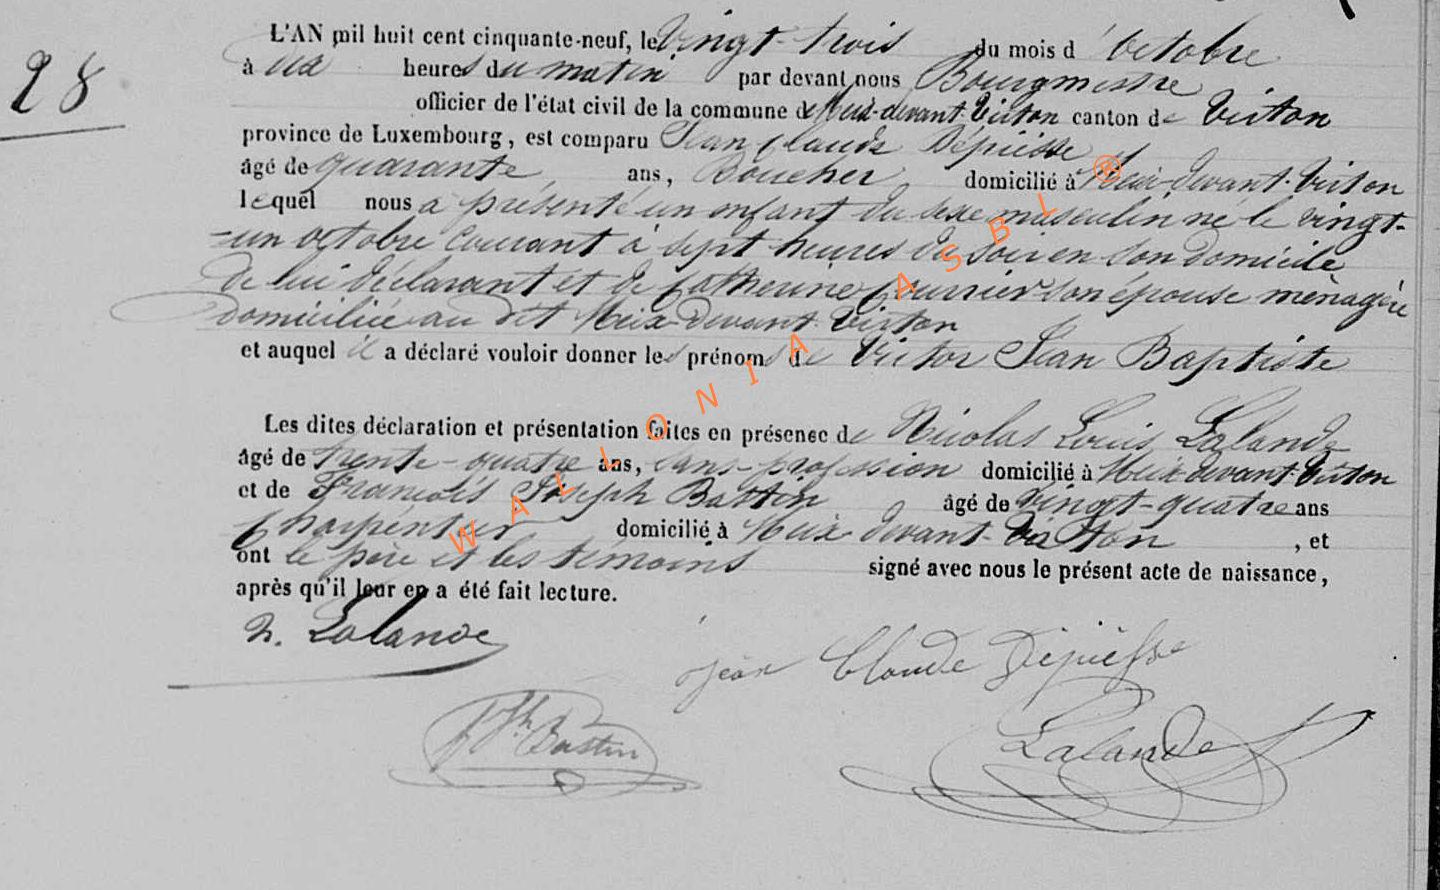 L'AN mil huit cent cinquante-neuf, le vingt-trois du mois d'octobre
28
à dix heures du matin par devant nous Bourgmestre
officier de l'état civil de la commune de Meix-devant-Virton canton de Virton
province de Luxembourg, est comparu Jean Claude Dépiesse
âgé de quarante ans, Boucher domicilié à Meix-devant-Virton
lequel nous a présenté un enfant du sexe masculin né le vingt-
-un octobre courant à sept heures du soir en son domicile
de lui déclarant et de Catherine son épouse ménagère
domiciliée au dit Meix-devant-Virton
et auquel il a déclaré vouloir donner les prénoms de Victor Jean Baptiste
Les dites déclaration et présentation faites en présence de Nicolas Louis Lalande
âgé de trente-quatre ans, sans profession domicilié à Meix-devant-Virton
et de François Joseph Bastin âgé de vingt-quatre ans
Charpentier domicilié à Meix-devant-Virton, et
ont le père et les témoins signé avec nous le présent acte de naissance,
après qu'il leur en a été fait lecture.
n. Lalande
jean Claude Dépiesse
Bastin
Lalande
WALLONIA ASBL ®